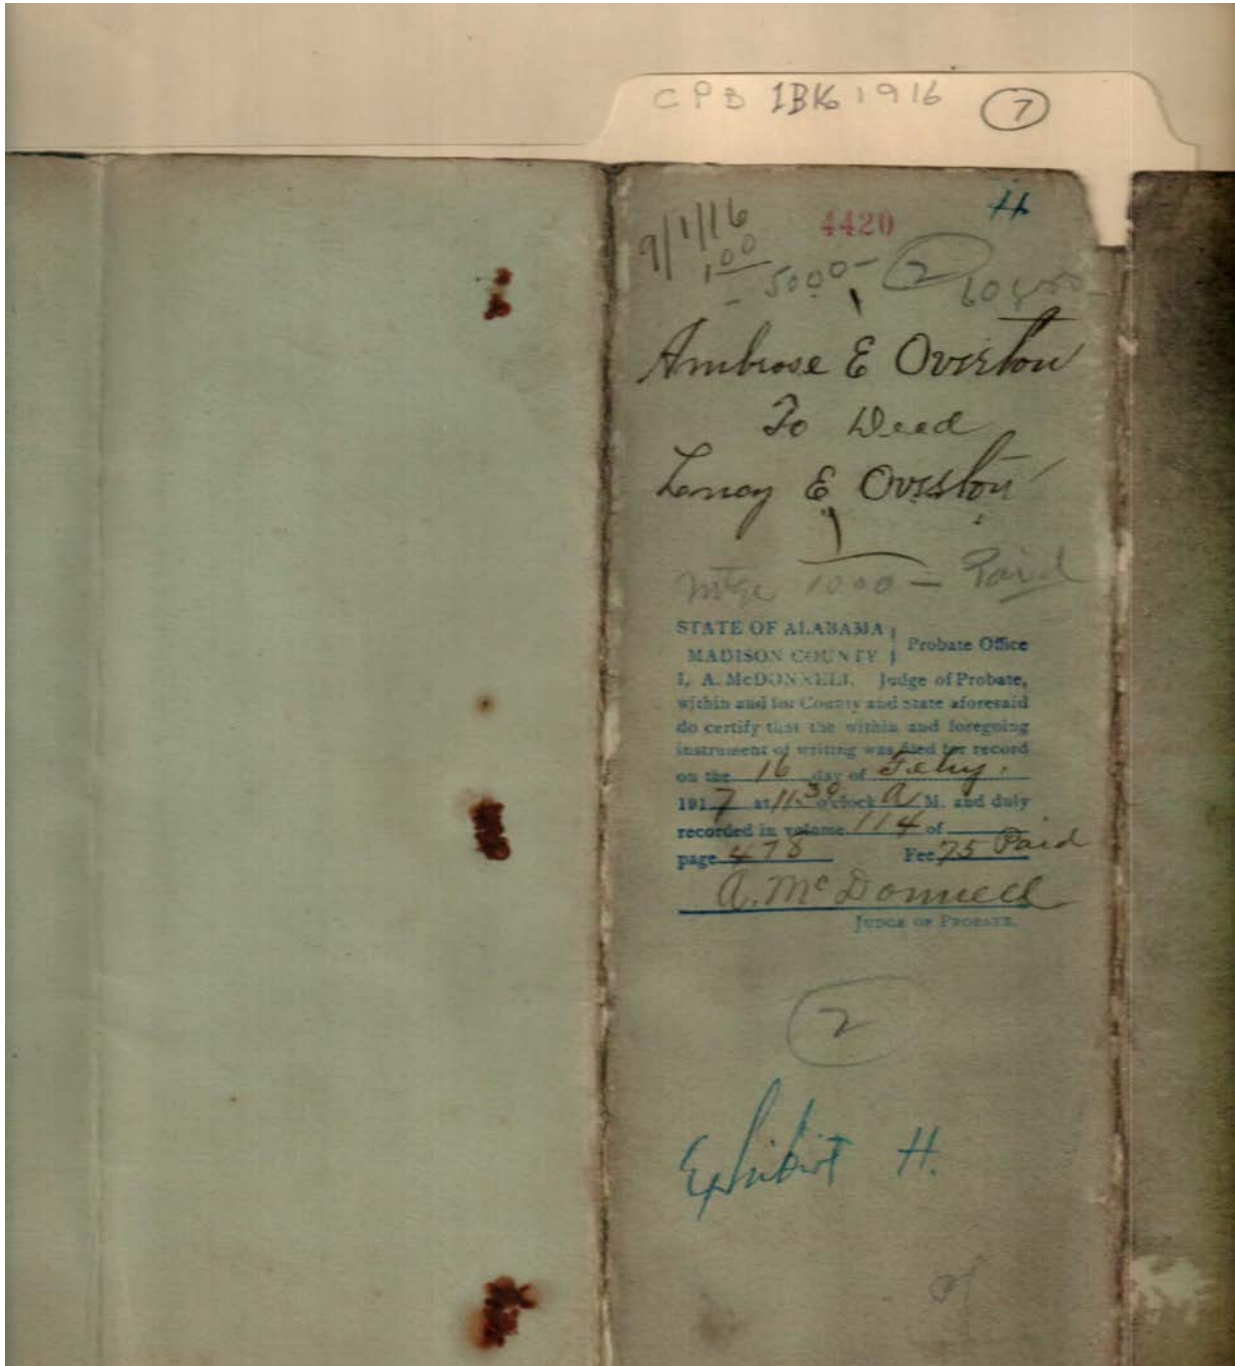 CPB IBK 1916 7
H
4420
9/1/16
1 00
- 5000 - 2
Ambrose E Overton
To Deed
E Overton
Mtge 1000 - Paid
STATE OF ALABAMA
MADISON COUNTY
Probate Office
I, A. McDONNELL, Judge of Probate,
within and for County and State aforesaid
do certify that the within and foregoing
instrument of writing was filed for record
on the 16 day of Feby.
1917 at 11:30 o'clock A M. and duly
recorded in volume 114 of
page 478 Fee 75 Paid
A. McDonnell
JUDGE OF PROBATE.
2
Exhibit H.